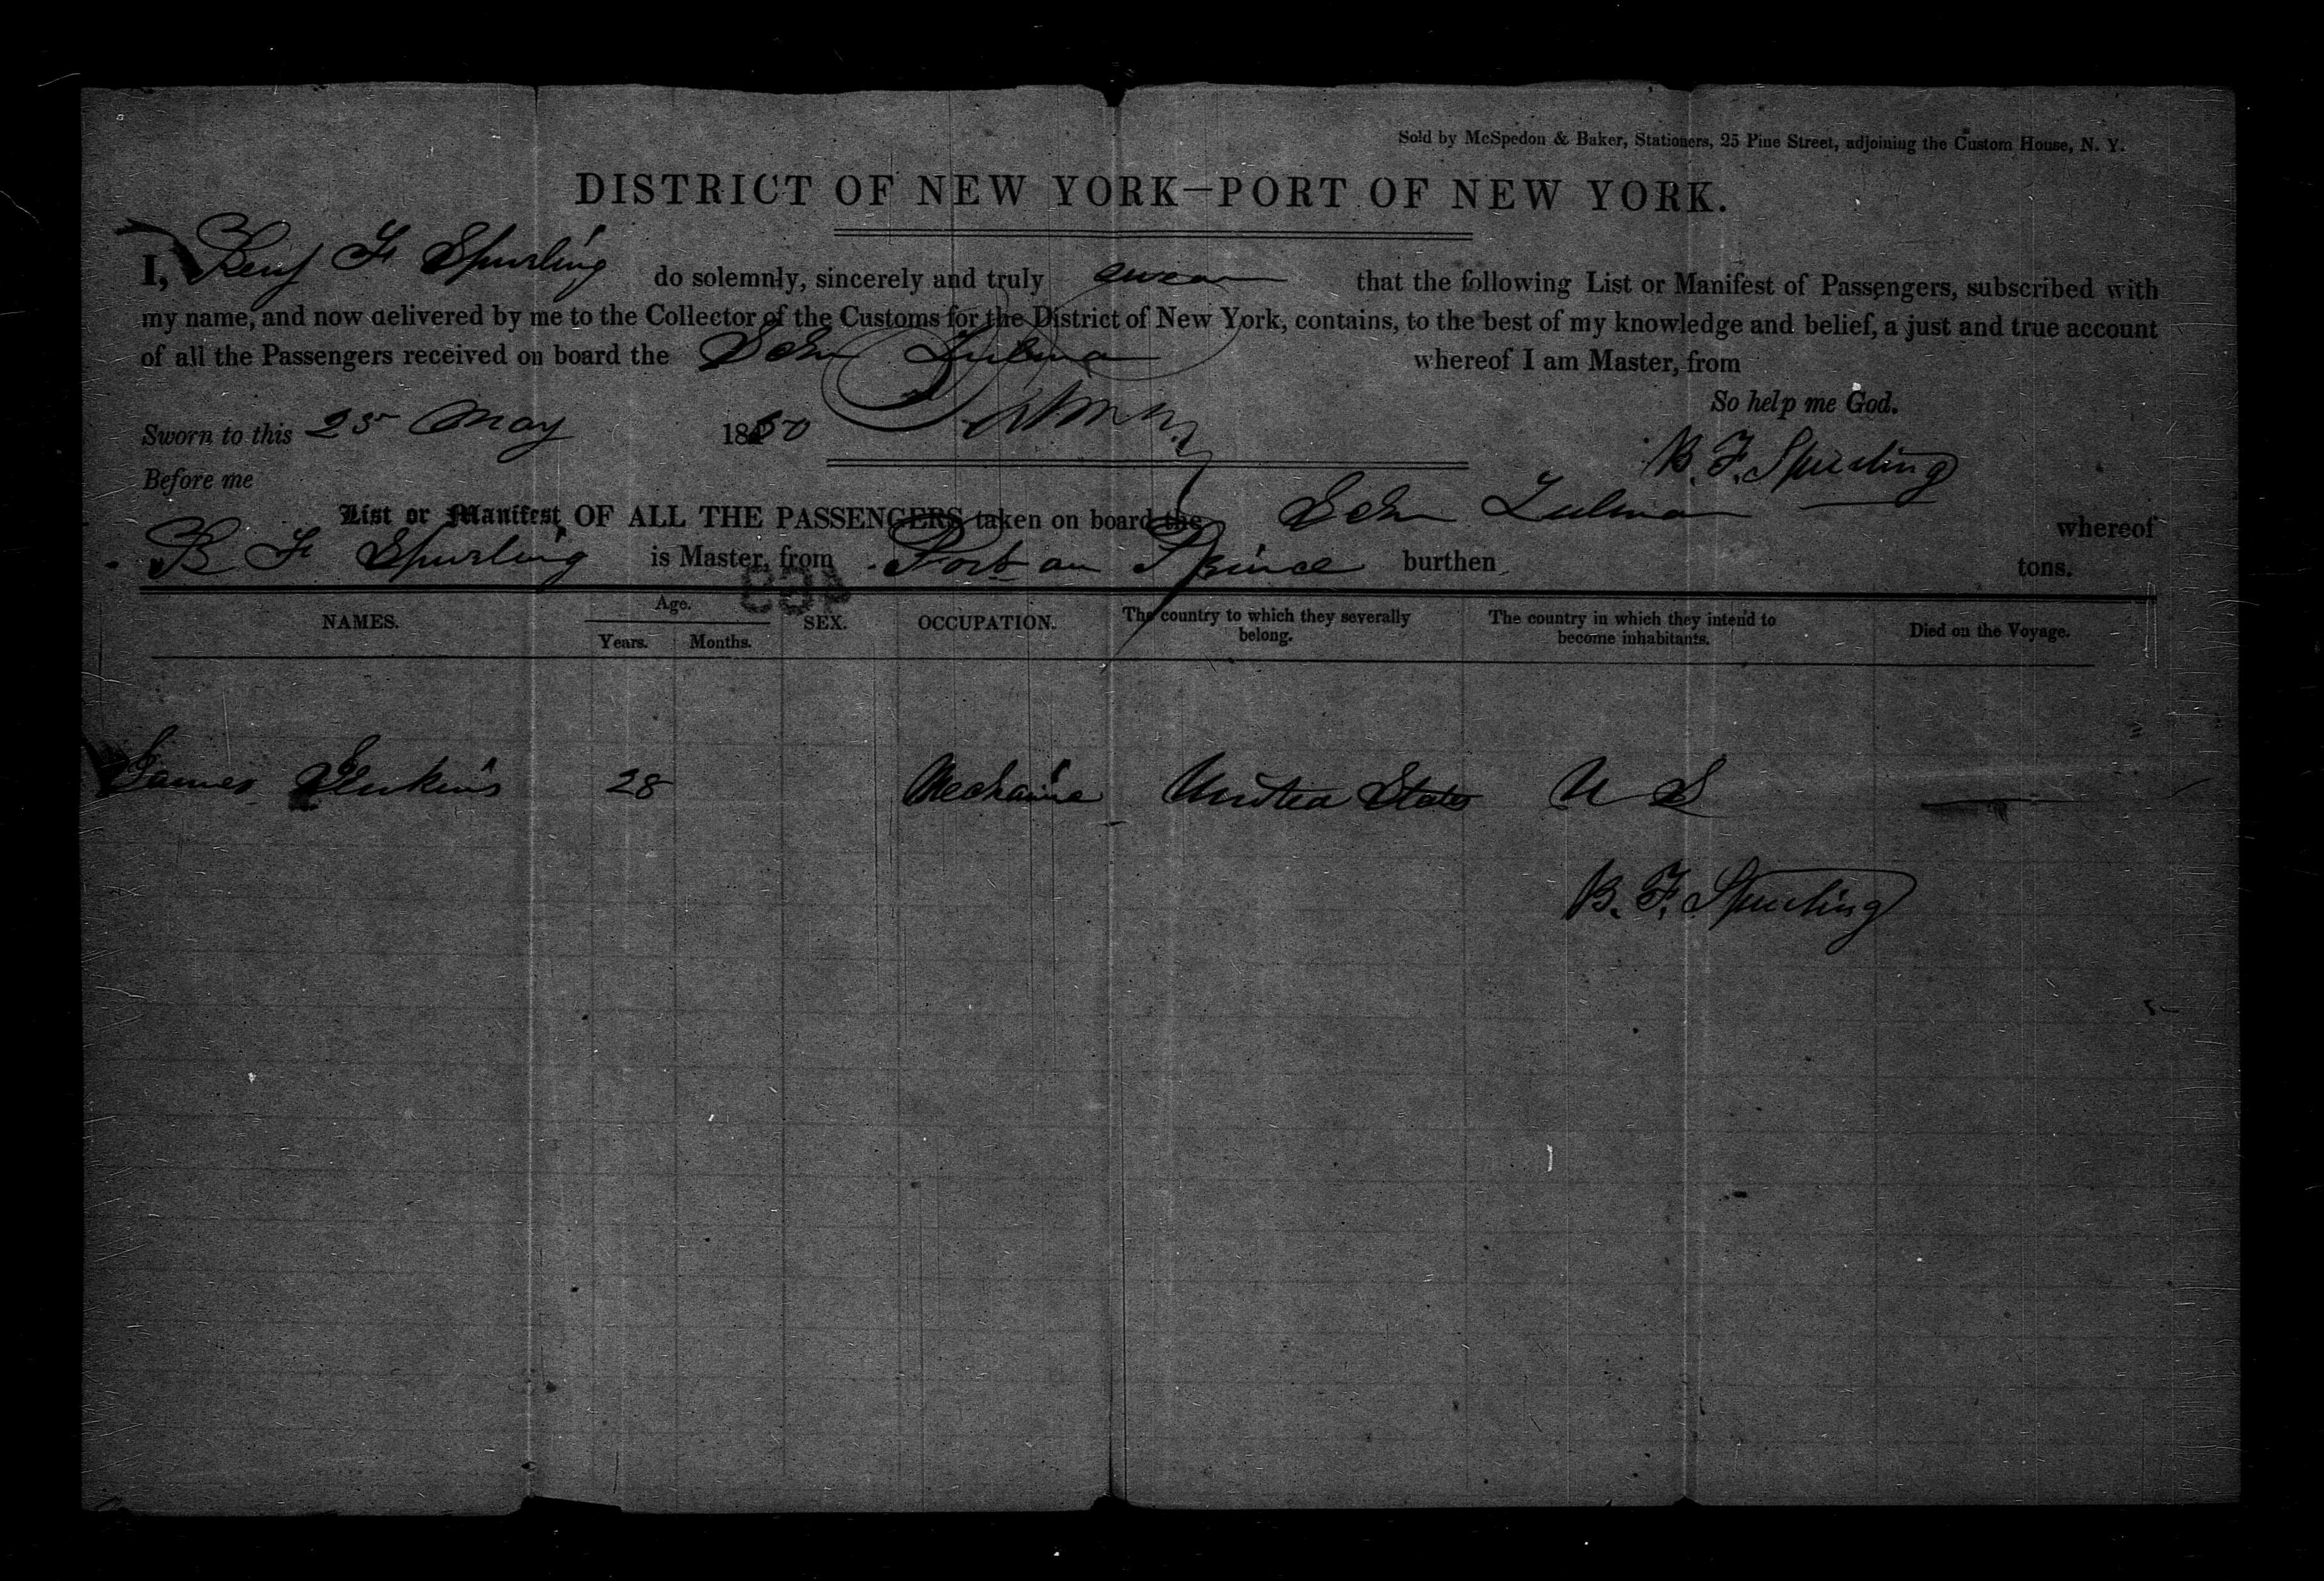 Sold by McSpedon & Baker, Stationers, 25 Pine Street, adjoining the Custom House, N. Y.
DISTRICT OF NEW YORK—PORT OF NEW YORK.
I, Benj F Spurling do solemnly, sincerely and truly swear that the following List or Manifest of Passengers, subscribed with
my name, and now delivered by me to the Collector of the Customs for the District of New York, contains, to the best of my knowledge and belief, a just and true account
of all the Passengers received on board the Schr Zulma whereof I am Master, from
So help me God.
Sworn to this 25 May 1850
B. F. Spurling
Before me
List or Manifest OF ALL THE PASSENGERS taken on board the Schr Zulma whereof
B F Spurling is Master, from Port au Prince burthen tons.
NAMES. Age. Years. Months. SEX. OCCUPATION. The country to which they severally belong. The country in which they intend to become inhabitants. Died on the Voyage.
James Jenkins 28 Mechanic United States U S
B. F. Spurling